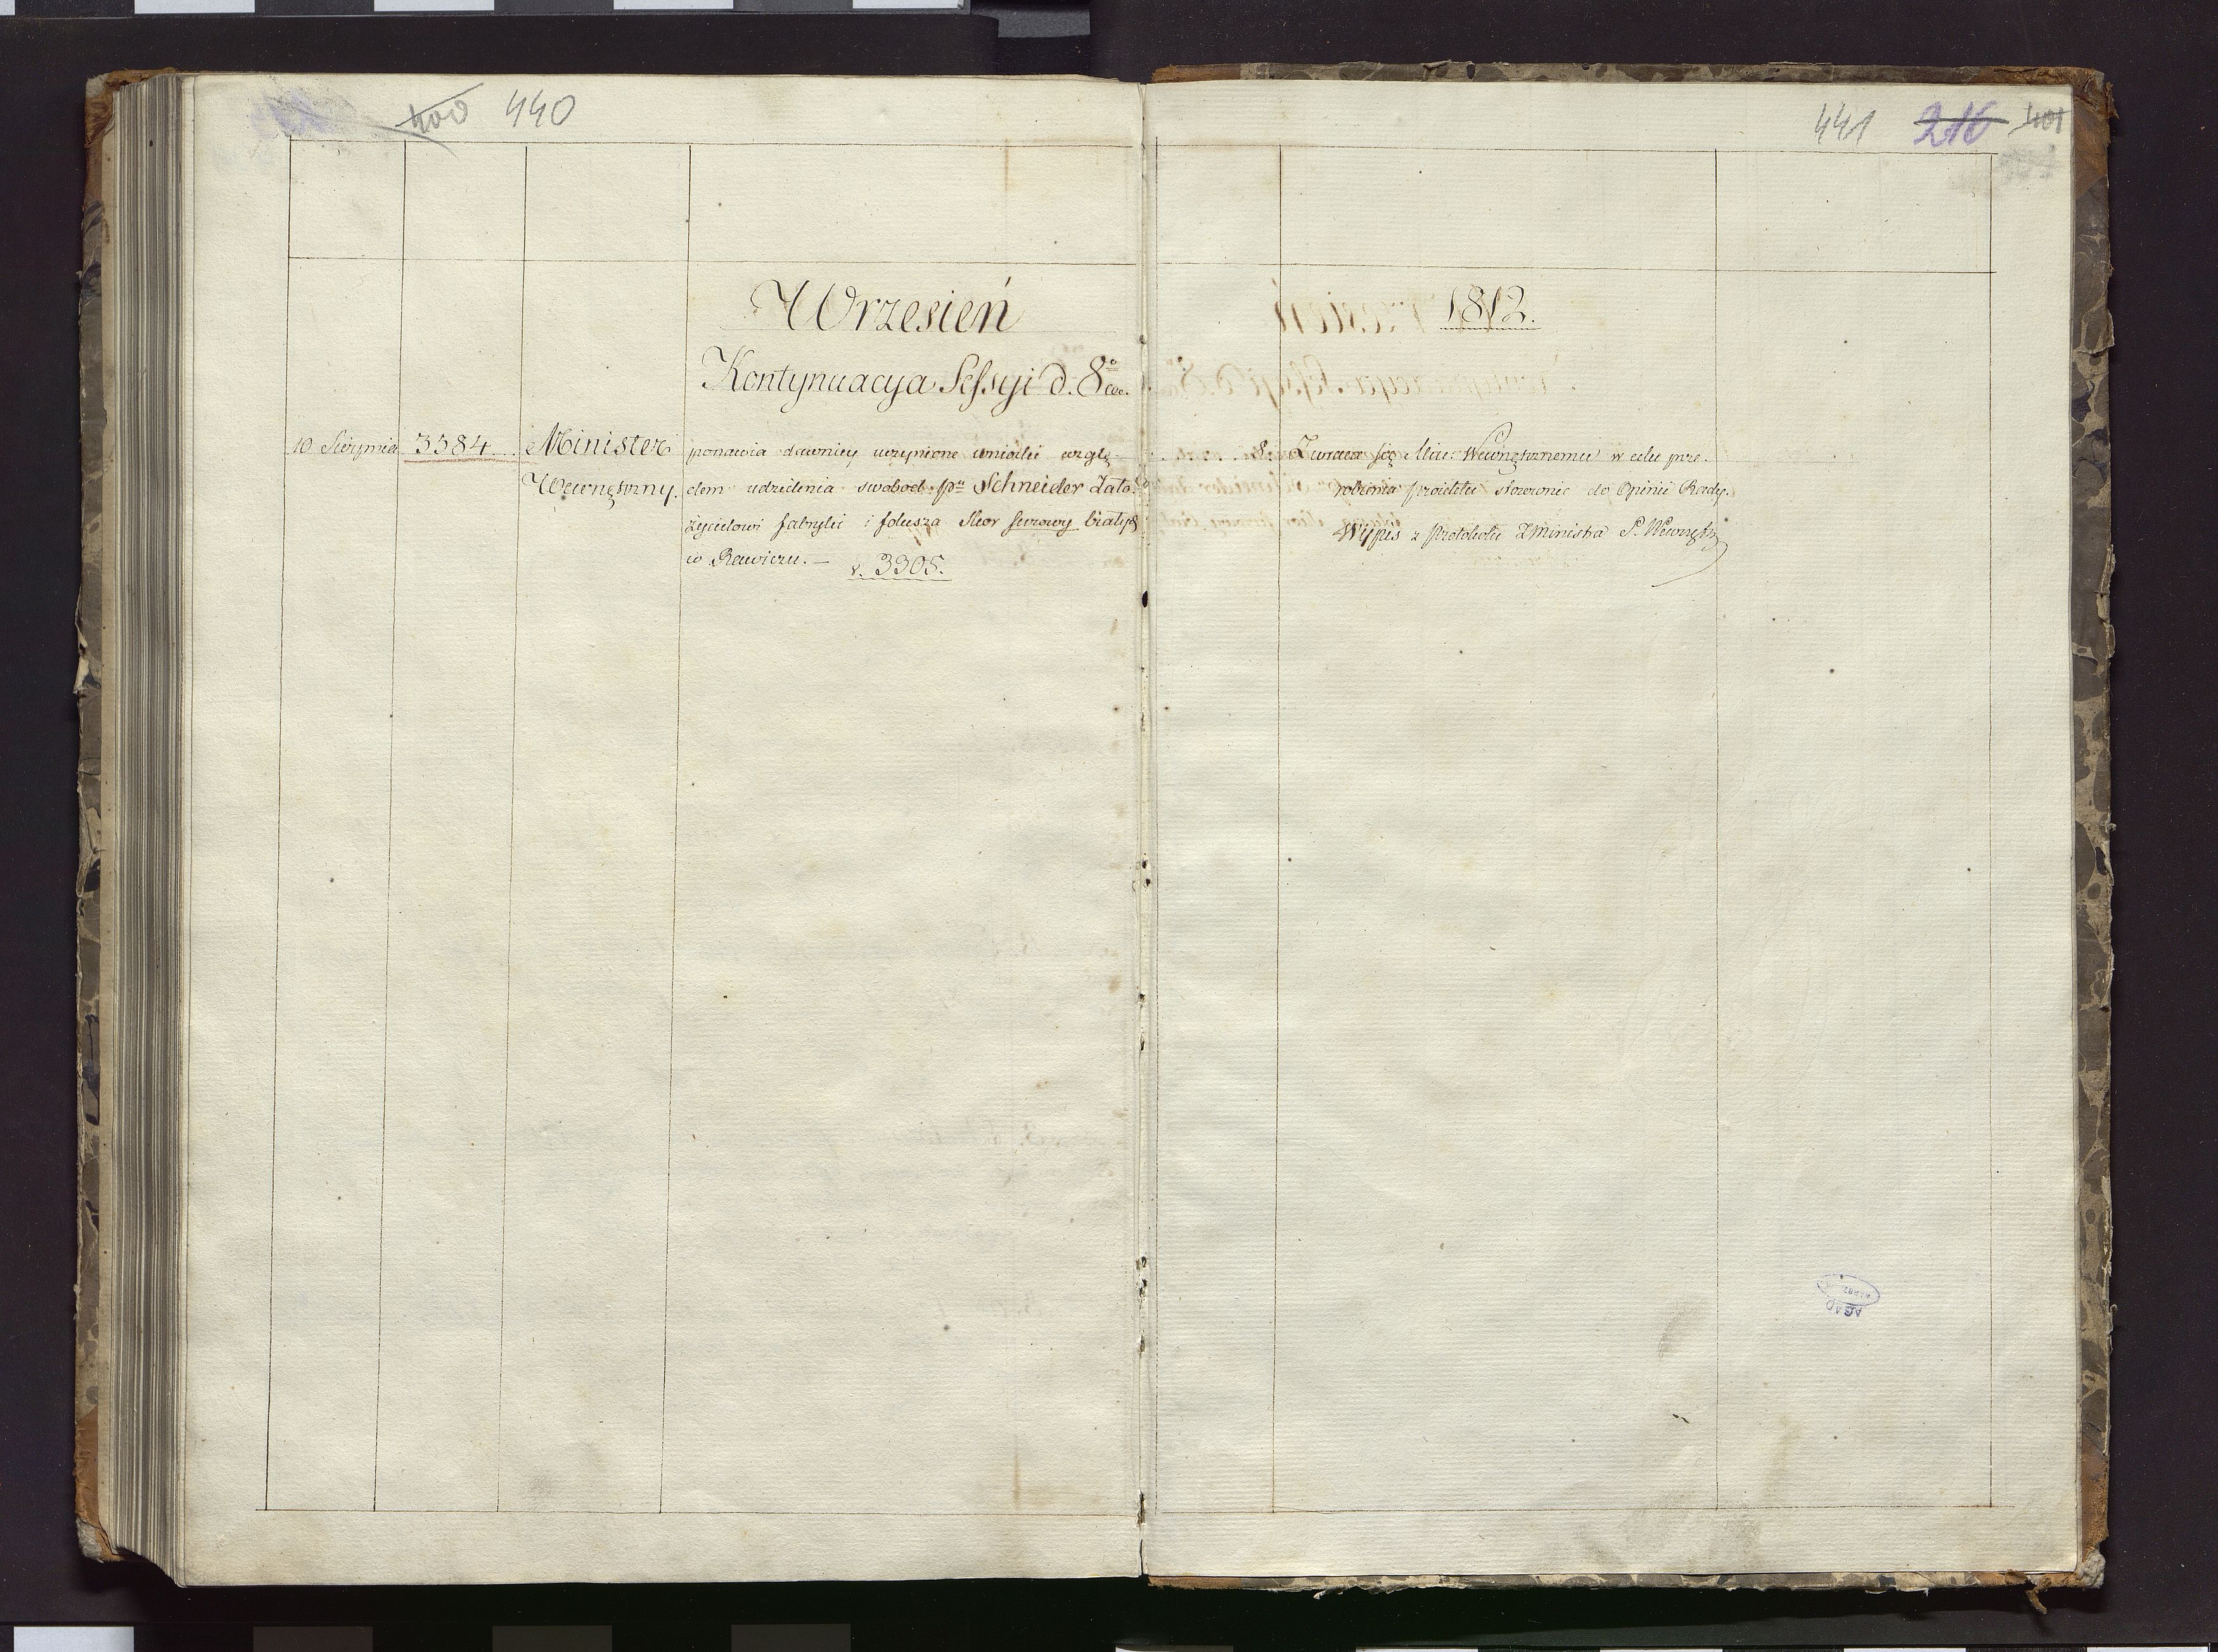 400 440
441 216 401
Wrzesień 1812.
Kontynuacya Sessyi d. 8º
10 Sierpnia 3584 Minister Wewnętrzny.
ponawia dawniey uczynione wnioski wzglę-
dem udzielenia swobod pu Schneider Zało-
życielowi fabryki i folusza Skor surowy białych
w Rawiczu. – v. 3305.
8. Zwraca się Min: Wewnętrznemu w celu prze-
robienia proiektu stosownie do Opinii Rady.
Wypis z Protokołu ZMinistra S. Wewnętrz
AGAD